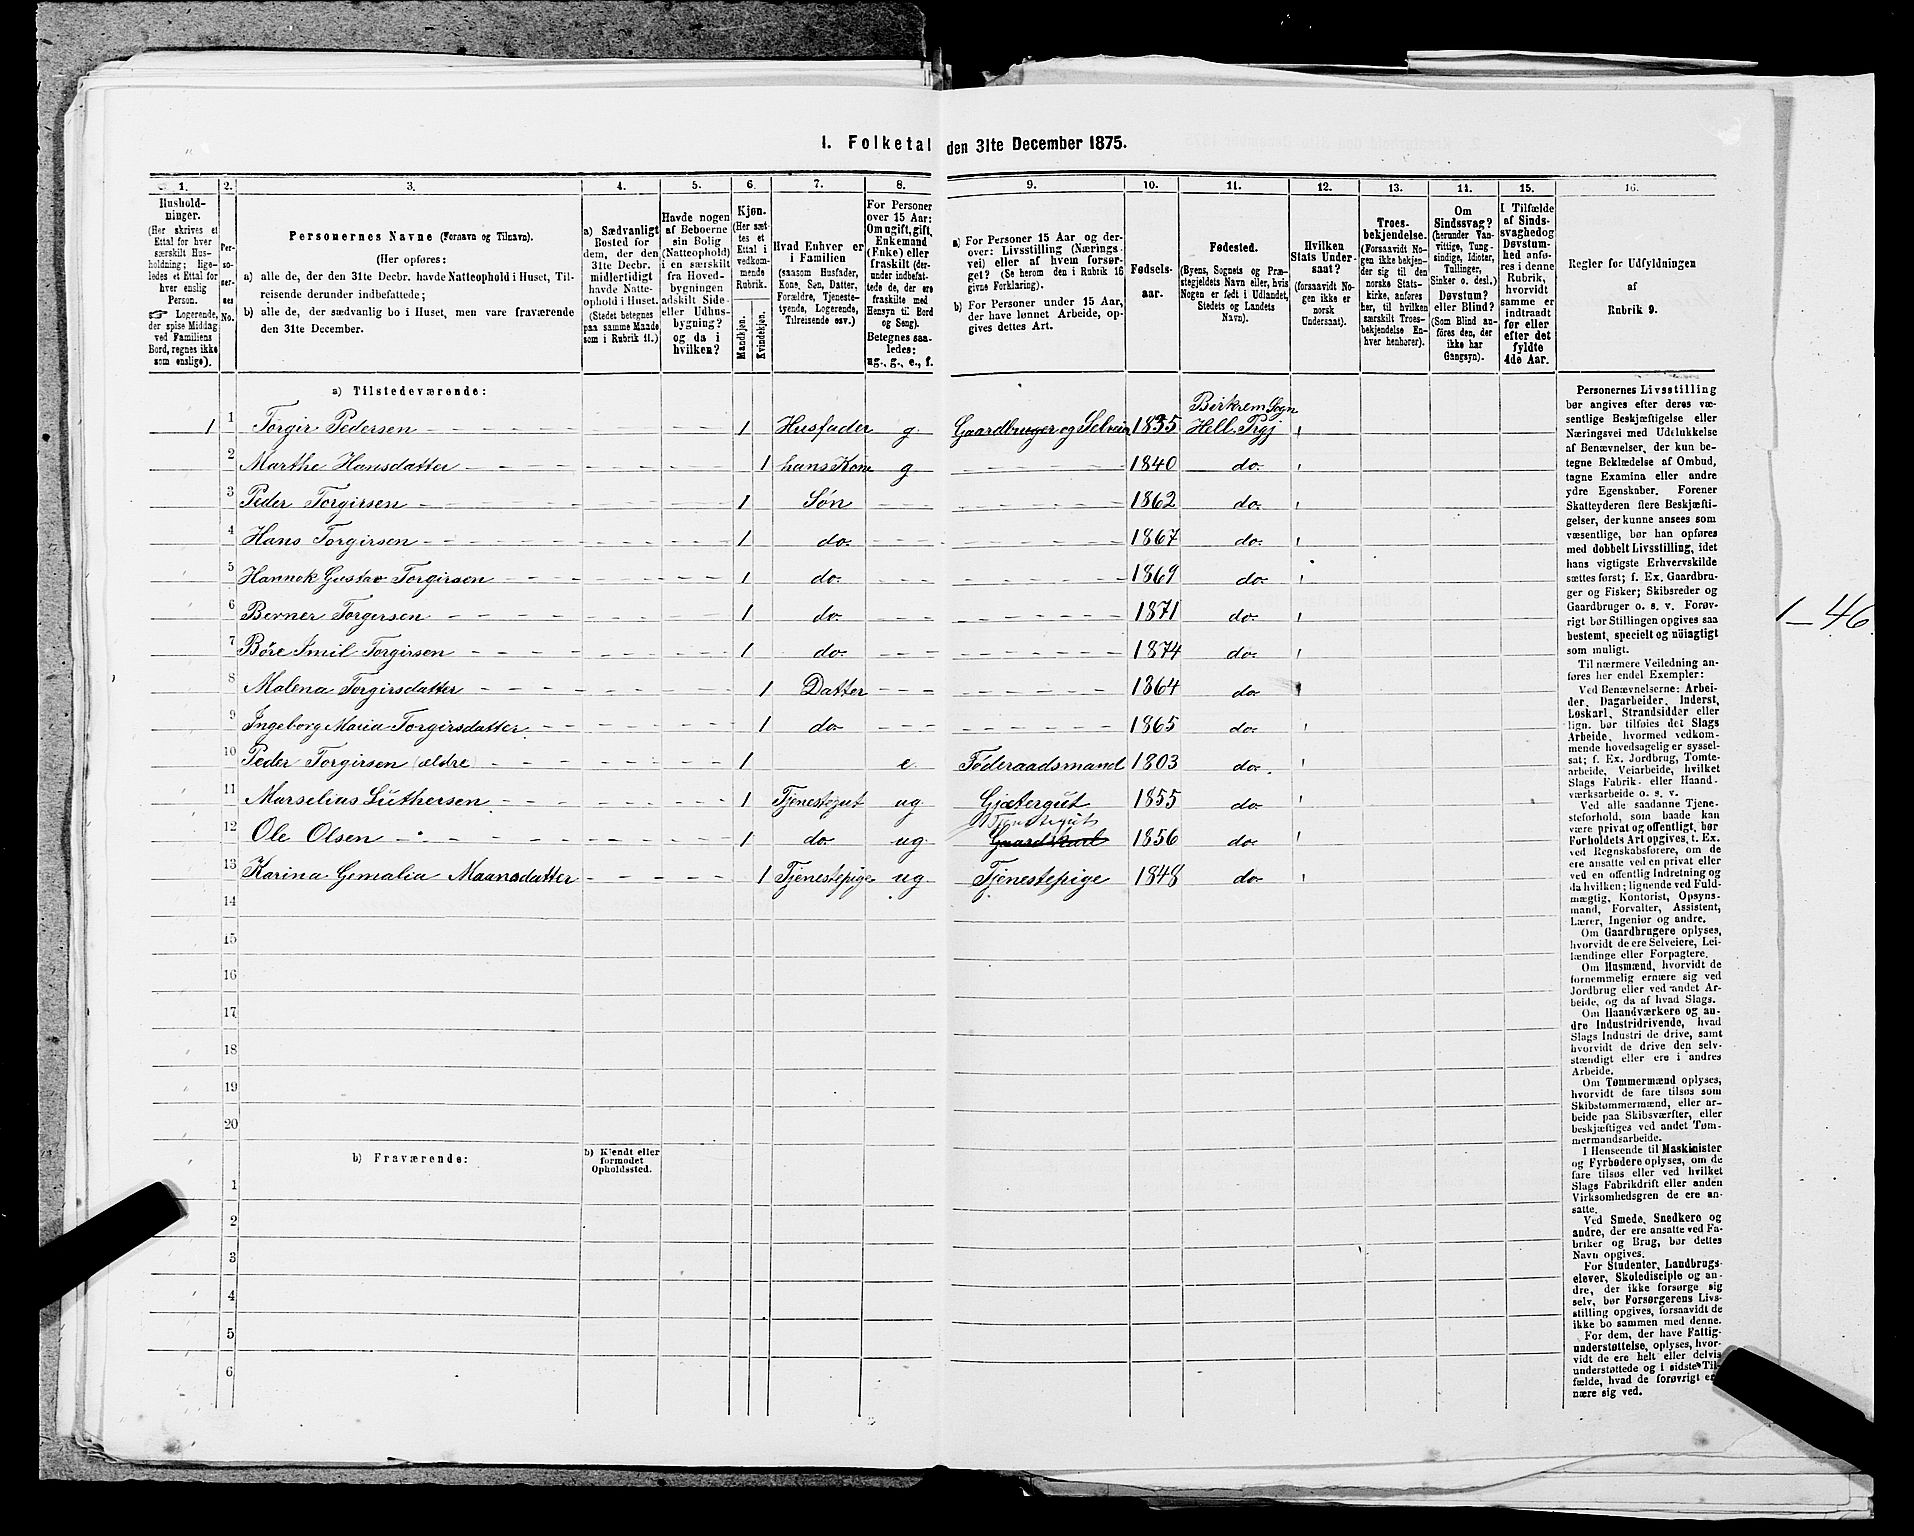 1. Folketal den 31te December 1875.
1. 2. 3. 4. 5. 6. 7. 8. 9. 10. 11. 12. 13. 14. 15. 16.
Hushold-
ninger.
(Her skrives et
Ettal for hver
særskilt Hus-
holdning; lige-
ledes et Ettal for
hver enslig
Person.
☞ Logerende,
der spise Middag
ved Familiens
Bord, regnes ikke
som enslige).
Per-
so-
ner-
nes
No.
Personernes Navne (Fornavn og Tilnavn).
(Her opføres:
a) alle de, der den 31te Decbr. havde Natteophold i Huset, Til-
reisende derunder indbefattede;
b) alle de, der sædvanlig bo i Huset, men vare fraværende
den 31te December.
a) Sædvanligt
Bosted for
dem, der den
31te Decbr.
midlertidigt
havde Natte-
ophold i Huset.
(Stedet betegnes
paa samme Maade
som i Rubrik 11.)
Havde nogen
af Beboerne
sin Bolig
(Natteophold)
i en særskilt
fra Hoved-
bygningen
adskilt Side-
eller Udhus-
bygning?
og da i
hvilken?
Kjøn.
(Her sæt-
tes et
Ettal i
vedkom-
mende
Rubrik.
Mandkjøn.
Kvindekjøn.
Hvad Enhver er
i Familien
(saasom Husfader,
Kone, Søn, Datter,
Forældre, Tjeneste-
tyende, Logerende,
Tilreisende osv.)
For Personer
over 15 Aar:
Om ugift, gift,
Enkemand
(Enke) eller
fraskilt (der-
under indbefat-
tede de, der ere
fraskilte med
Hensyn til Bord
og Seng).
Betegnes saa-
ledes:
ug., g., e., f.
a) For Personer 15 Aar og der-
over: Livsstilling (Nærings-
vei) eller af hvem forsør-
get? (Se herom den i Rubrik 16
givne Forklaring).
b) For Personer under 15 Aar,
der have lønnet Arbeide, op-
gives dettes Art.
Fødsels-
aar.
Fødested.
(Byens, Sognets og Præ-
stegjeldets Navn eller, hvis
Nogen er født i Udlandet,
Stedets og Landets
Navn).
Hvilken
Stats Under-
saat?
(forsaavidt No-
gen ikke er
norsk
Undersaat).
Troes-
bekjendelse.
(Forsaavidt No-
gen ikke bekjen-
der sig til den
norske Stats-
kirke, anføres
her, til hvilken
særskilt Troes-
bekjendelse En-
hver henhører).
Om
Sindssvag?
(herunder Van-
vittige, Tung-
sindige, Idioter,
Tullinger,
Sinker o. desl.)
Døvstum?
eller Blind?
(Som Blind an-
føres den, der
ikke har
Gangsyn).
I Tilfælde
af Sinds-
svaghed og
Døvstum-
hed anfø-
res i denne
Rubrik,
hvorvidt
samme er
indtraadt
før eller
efter det
fyldte
4de Aar.
Regler for Udfyldningen
af
Rubrik 9.
a) Tilstedeværende:
Birkrem Sogn
1 1 Torgir Pedersen 1 Husfader g Gaardbruger og Selveier 1835 Hell. Prgj
2 Marthe Hansdatter 1 hans Kone g 1840 do.
3 Peder Torgirsen 1 Søn 1862 do.
4 Hans Torgirsen 1 do. 1867 do.
5 Hannok Gustav Torgirsen 1 do. 1869 do.
6 Berner Torgersen 1 do. 1871 do.
7 Böre Emil Torgirsen 1 do. 1874 do.
8 Malena Torgirsdatter 1 Datter 1864 do
9 Ingeborg Maria Torgirsdatter 1 do. 1865 do.
10 Peder Torgirsen (ældre) 1 e. Föderaadsmand 1803 do.
11 Marselius Luthersen 1 Tjenestegut ug Gjætergut 1855 do
Tjenestegut
12 Ole Olsen 1 do ug Gaardskarl 1856 do.
13 Karina Gemalia Maansdatter 1 Tjenestepige ug Tjenestepige 1848 do
14
15
16
17
18
19
20
b) Fraværende:
b) Kjendt eller
formodet
Opholdssted.
1
2
3
4
5
6
Personernes Livsstilling
bør angives efter deres væ-
sentlige Beskjæftigelse eller
Næringsvei med Udelukkelse
af Benævnelser, der kun be-
tegne Beklædelse af Ombud,
tagne Examina eller andre
ydre Egenskaber. Forener
Skatteyderen flere Beskjæfti-
gelser, der kunne ansees som
væsentlige, bør han opføres
med dobbelt Livsstilling, idet
hans vigtigste Erhvervskilde
sættes først; f. Ex. Gaardbru-
ger og Fisker; Skibsreder og
Gaardbruger o. s. v. Forøv-
rigt bør Stillingen opgives saa
bestemt, specielt og nöiagtigt
som muligt.
Til nærmere Veiledning an-
føres her endel Exempler:
Ved Benævnelserne: Arbei-
der, Dagarbeider, Inderst,
Løskarl, Strandsidder eller
lign. bør tilføies det Slags
Arbeide, hvormed vedkom-
mende hovedsagelig er syssel-
sat; f. Ex. Jordbrug, Tomte-
arbeide, Veiarbeide, hvilket
Slags Fabrik- eller Haand-
værksarbeide o. s. v.
Ved alle saadanne Tjene-
steforhold, som baade kan
være privat og offentligt, bør
Forholdets Art opgives, t. Ex.
ved Regnskabsførere, om de
ere ansatte ved en privat eller
ved en offentlig Indretning og
da hvilken; lignende ved Fuld-
mægtig, Kontorist, Opsyns-
mand, Forvalter, Assistent,
Lærer, Ingeniør og andre.
Om Gaardbrugere oplyses,
hvorvidt de ere Selveiere, Lei-
lændinge eller Forpagtere.
Om Husmænd, hvorvidt de
fornemmelig ernære sig ved
Jordbrug eller ved andet Ar-
beide, og da af hvad Slags.
Om Haandværkere og an-
dre Industridrivende, hvad
Slags Industri de drive, samt
hvorvidt de drive den selv-
stændigt eller ere i andres
Arbeide.
Om Tømmermænd oplyses,
hvorvidt de fare tilsøs som
Skibstømmermænd, eller ar-
beide paa Skibsværfter, eller
beskjæftiges ved andet Tøm-
mermandsarbeide.
I Henseende til Maskinister
og Fyrbødere oplyses, om de
fare tilsøs eller ved hvilket
Slags Fabrikdrift eller anden
Virksomhedsgren de ere an-
satte.
Ved Smede, Snedkere og
andre, der ere ansatte ved Fa-
briker og Brug, bør dettes
Navn opgives.
For Studenter, Landbrugs-
elever, Skoledisciple og an-
dre, der ikke forsørge sig
selv, bør Forsørgerens Livs-
stilling opgives, forsaavidt de
ikke bo sammen med denne.
For dem, der have Fattig-
understøttelse, oplyses, hvor-
vidt de ere helt eller delvis
understøttede og i sidste Til-
fælde, hvad de forøvrigt er-
nære sig ved.
1-46.